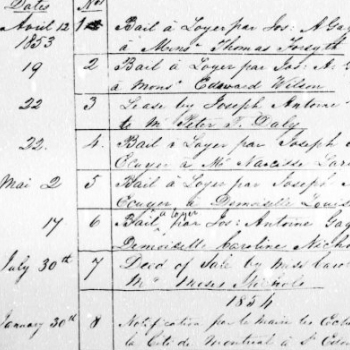 Dates Nos
April 12 1st Bail à Loyer par Jos: A Gag
1853 à Monsr Thomas Forsyth
19 2 Bail à Loyer par Jos: A.
à Monsr Edward Wilson
22 3 Lease by Joseph Antoine
to Mr Peter T. Daly
22. 4. Bail à Loyer par Joseph
Ecuyer à Mr Narcisse Lar
Mai 2 5 Bail à Loyer par Joseph
Ecuyer à Demoiselle Louis
17 6 Bail à loyer par Jos: Antoine Gag
Demoiselle Caroline Nicho
July 30th 7 Deed of Sale by Miss Caro
Mr Moses Nichols
1854
January 30th 8 Notification par le maire les
la Cité de Montreal à